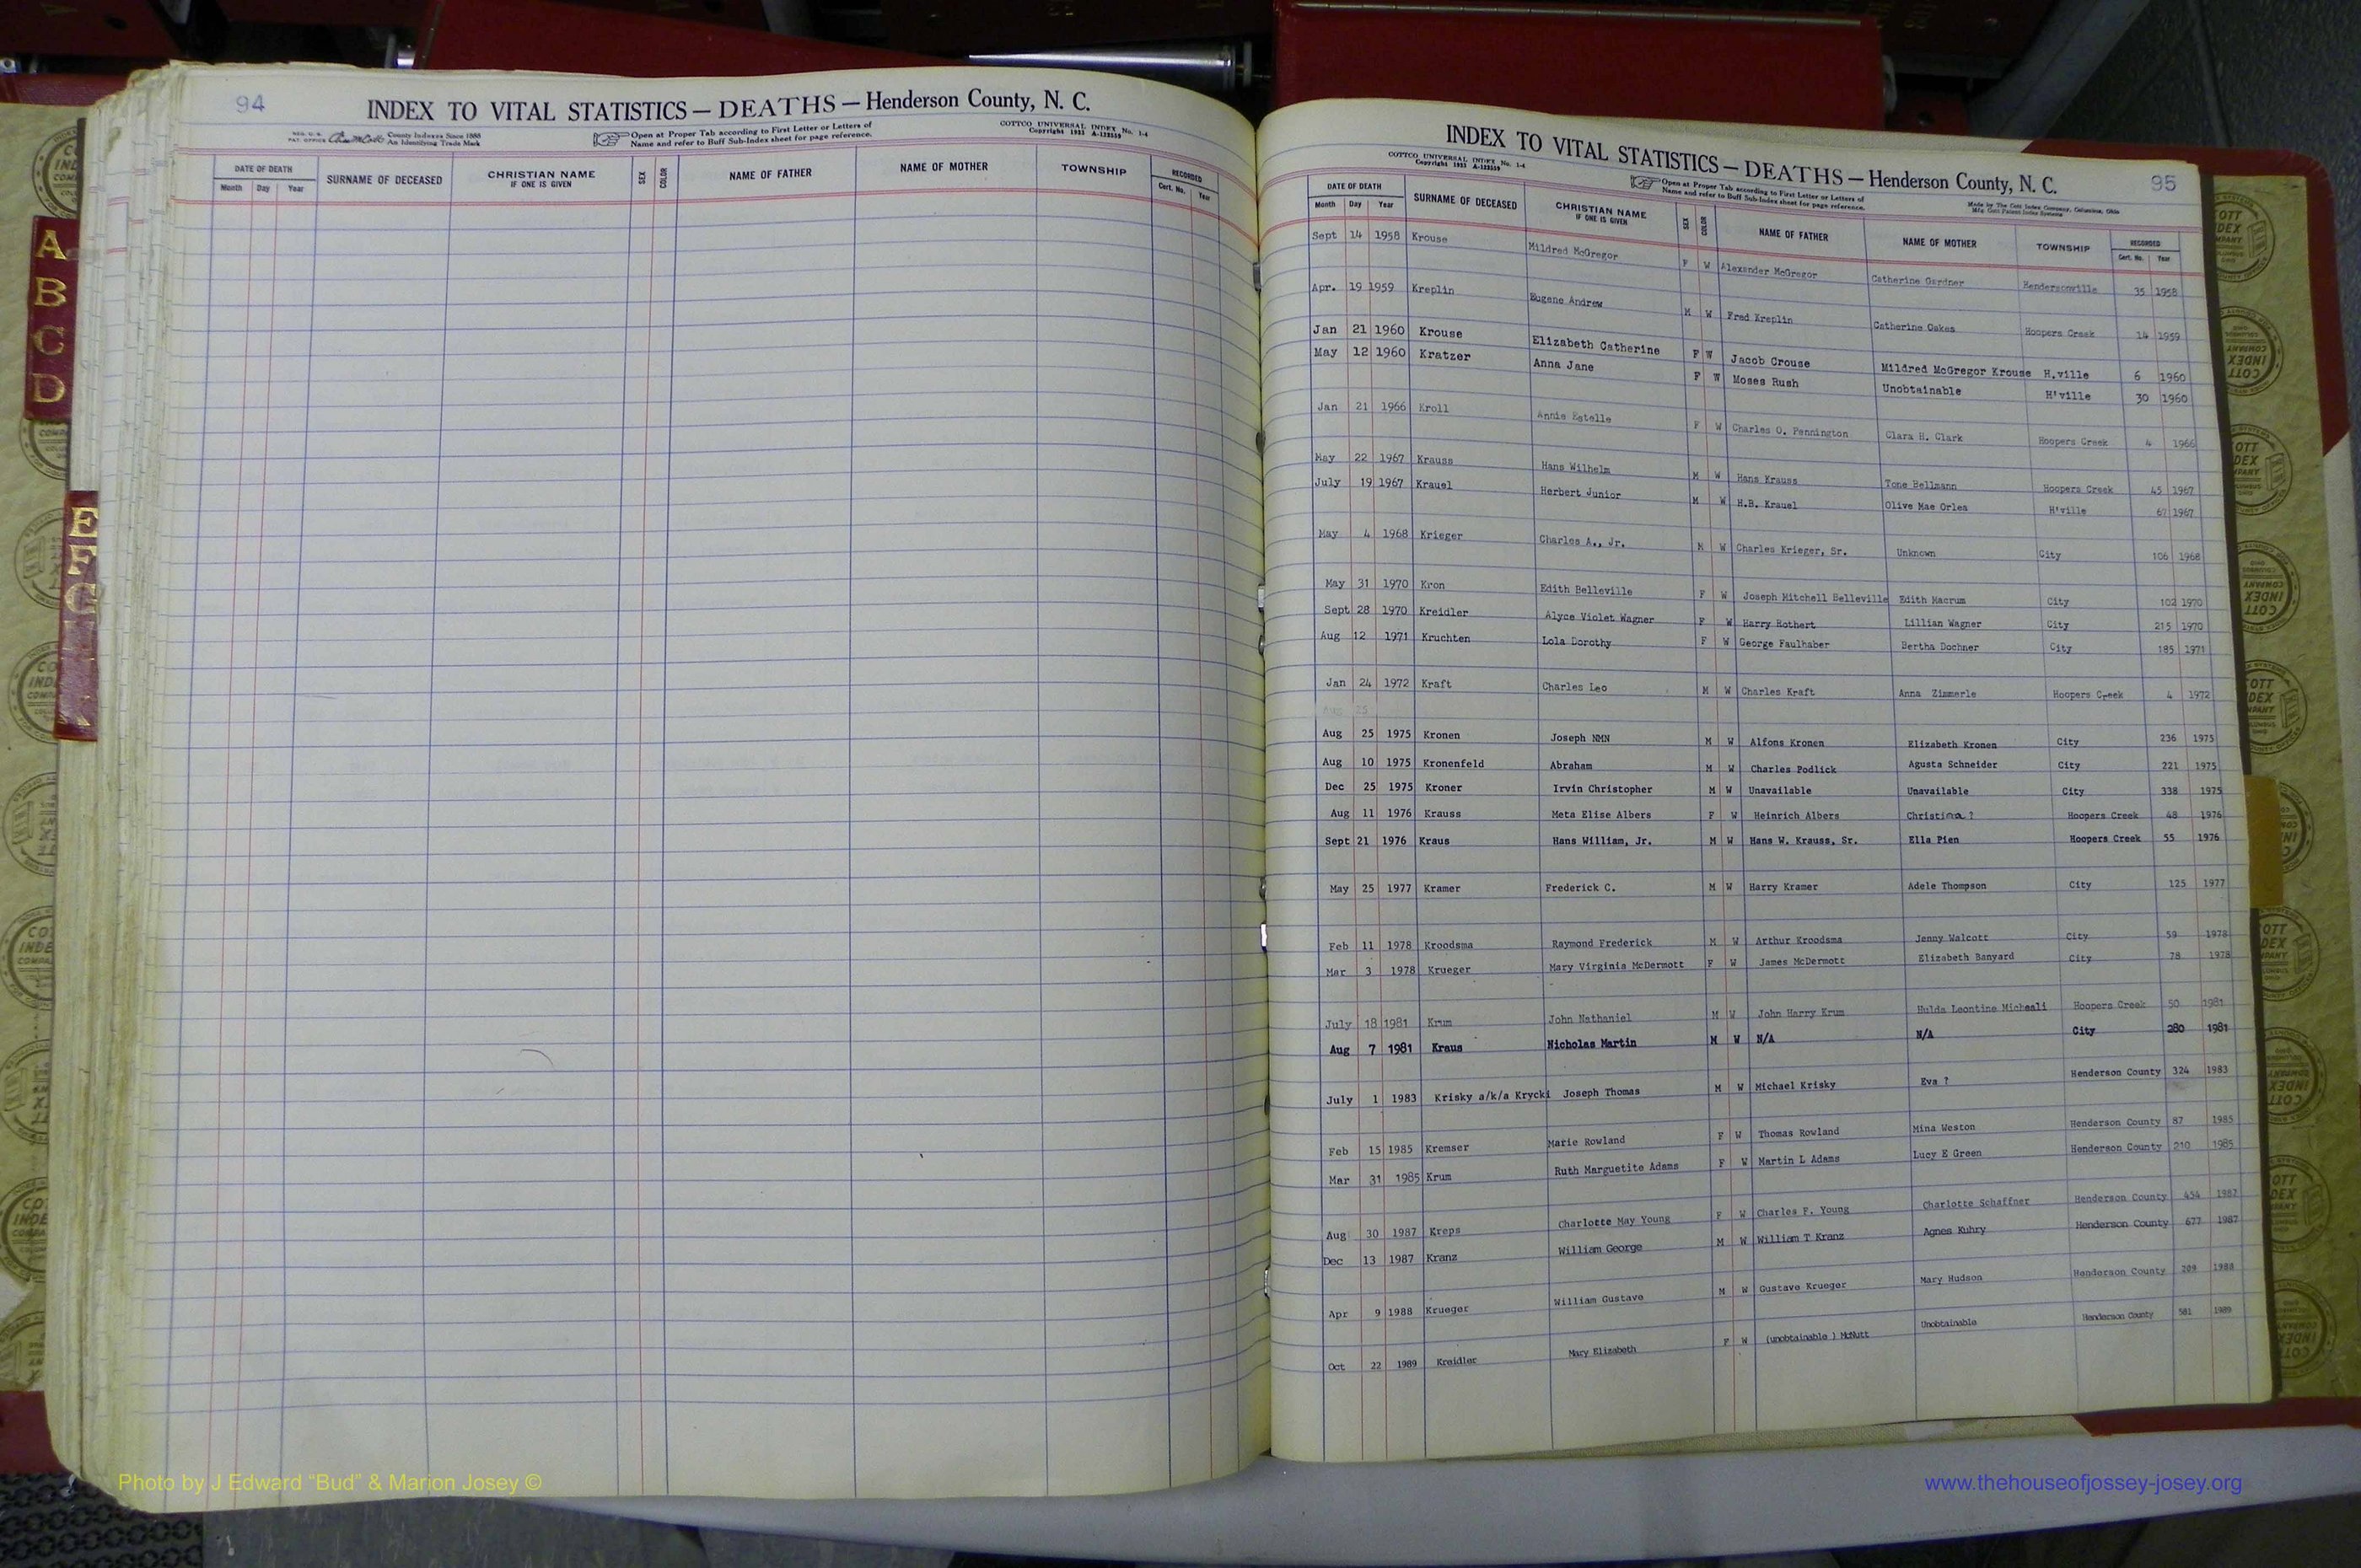 94
INDEX TO VITAL STATISTICS — DEATHS — Henderson County, N. C.
REG. U. S. PAT. OFFICE County Indexes Since 1888 An Identifying Trade Mark
Open at Proper Tab according to First Letter or Letters of Name and refer to Buff Sub-Index sheet for page reference.
COTTCO UNIVERSAL INDEX No. 1-4 Copyright 1933 A-123559
DATE OF DEATH Month Day Year SURNAME OF DECEASED CHRISTIAN NAME IF ONE IS GIVEN SEX COLOR NAME OF FATHER NAME OF MOTHER TOWNSHIP RECORDED Cert. No. Year
A
B
C
D
E
F
G
INDEX TO VITAL STATISTICS — DEATHS — Henderson County, N. C. 95
COTTCO UNIVERSAL INDEX No. 1-4 Copyright 1933 A-123559
Open at Proper Tab according to First Letter or Letters of Name and refer to Buff Sub-Index sheet for page reference.
Made by The Cott Index Company, Columbus, Ohio
Mfg. Cott Patent Index Systems
DATE OF DEATH Month Day Year SURNAME OF DECEASED CHRISTIAN NAME IF ONE IS GIVEN SEX COLOR NAME OF FATHER NAME OF MOTHER TOWNSHIP RECORDED Cert. No. Year
Sept 14 1958 Krouse Mildred McGregor F W Alexander McGregor Catherine Gardner Hendersonville 35 1958
Apr. 19 1959 Kreplin Eugene Andrew M W Fred Kreplin Catherine Oakes Hoopers Creek 14 1959
Jan 21 1960 Krouse Elizabeth Catherine F W Jacob Crouse Mildred McGregor Krouse H.ville 6 1960
May 12 1960 Kratzer Anna Jane F W Moses Rush Unobtainable H'ville 30 1960
Jan 21 1966 Kroll Annie Estelle F W Charles O. Pennington Clara H. Clark Hoopers Creek 4 1966
May 22 1967 Krauss Hans Wilhelm M W Hans Krauss Tone Bellmann Hoopers Creek 45 1967
July 19 1967 Krauel Herbert Junior M W H.B. Krauel Olive Mae Orlea H'ville 67 1967
May 4 1968 Krieger Charles A., Jr. M W Charles Krieger, Sr. Unknown City 106 1968
May 31 1970 Kron Edith Belleville F W Joseph Mitchell Belleville Edith Macrum City 102 1970
Sept 28 1970 Kreidler Alyce Violet Wagner F W Harry Rothert Lillian Wagner City 215 1970
Aug 12 1971 Kruchten Lola Dorothy F W George Faulhaber Bertha Dochner City 185 1971
Jan 24 1972 Kraft Charles Leo M W Charles Kraft Anna Zimmerle Hoopers Creek 4 1972
Aug 25
Aug 25 1975 Kronen Joseph NMN M W Alfons Kronen Elizabeth Kronen City 236 1975
Aug 10 1975 Kronenfeld Abraham M W Charles Podlick Agusta Schneider City 221 1975
Dec 25 1975 Kroner Irvin Christopher M W Unavailable Unavailable City 338 1975
Aug 11 1976 Krauss Meta Elise Albers F W Heinrich Albers Christina ? Hoopers Creek 48 1976
Sept 21 1976 Kraus Hans William, Jr. M W Hans W. Krauss, Sr. Ella Pien Hoopers Creek 55 1976
May 25 1977 Kramer Frederick C. M W Harry Kramer Adele Thompson City 125 1977
Feb 11 1978 Kroodsma Raymond Frederick M W Arthur Kroodsma Jenny Walcott City 59 1978
Mar 3 1978 Krueger Mary Virginia McDermott F W James McDermott Elizabeth Banyard City 78 1978
July 18 1981 Krum John Nathaniel M W John Harry Krum Hulda Leontine Micheali Hoopers Creek 50 1981
Aug 7 1981 Kraus Nicholas Martin M W N/A N/A City 280 1981
July 1 1983 Krisky a/k/a Krycki Joseph Thomas M W Michael Krisky Eva ? Henderson County 324 1983
Feb 15 1985 Kremser Marie Rowland F W Thomas Rowland Mina Weston Henderson County 87 1985
Mar 31 1985 Krum Ruth Marguetite Adams F W Martin L Adams Lucy E Green Henderson County 210 1985
Aug 30 1987 Kreps Charlotte May Young F W Charles F. Young Charlotte Schaffner Henderson County 454 1987
Dec 13 1987 Kranz William George M W William T Kranz Agnes Kuhry Henderson County 677 1987
Apr 9 1988 Krueger William Gustave M W Gustave Krueger Mary Hudson Henderson County 209 1988
Oct 22 1989 Kreidler Mary Elizabeth F W (unobtainable ) McNutt Unobtainable Henderson County 581 1989
Photo by J Edward “Bud” & Marion Josey ©
www.thehouseofjossey-josey.org